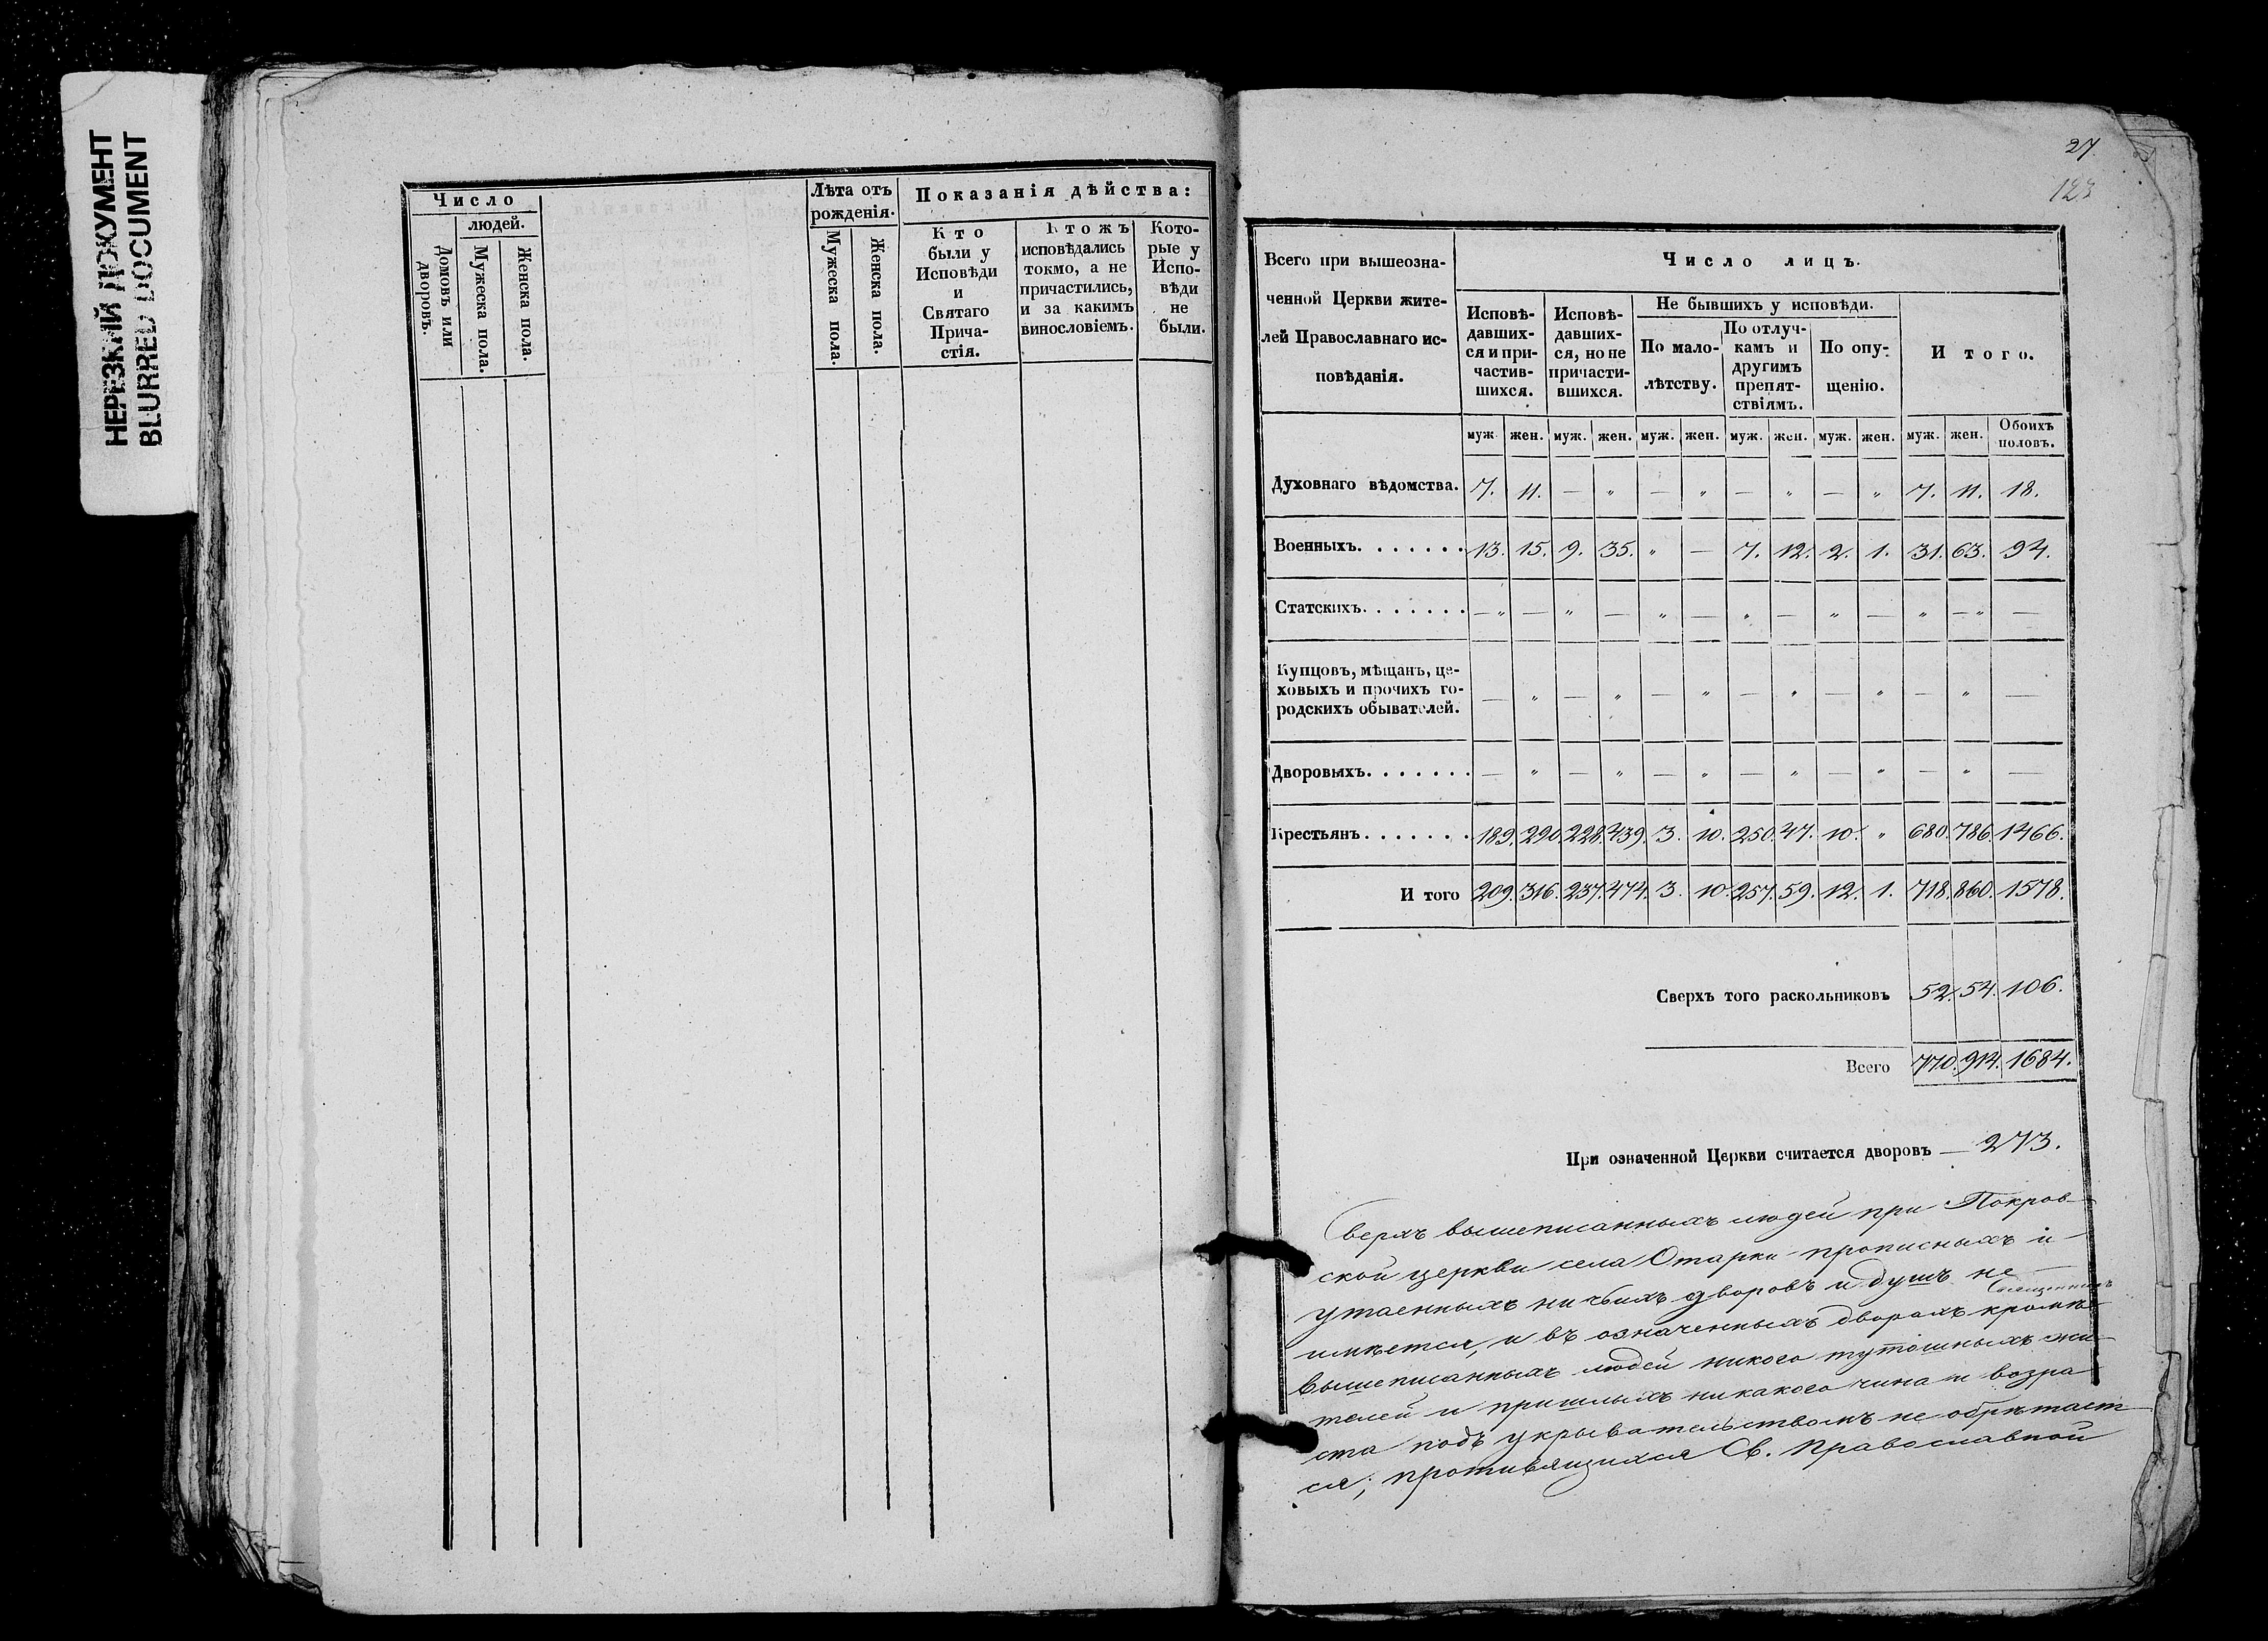 НЕРЕЗКИЙ ДОКУМЕНТ
BLURRED DOCUMENT
Число
людей.
Домовъ или дворовъ.
Мужеска пола.
Женска пола.
Лѣта отъ
рожденія.
Мужеска пола.
Женска пола.
Показанія дѣйства:
Кто
были у
Исповѣди
и
Святаго
Прича-
стія.
Ктожъ
исповѣдались
токмо, а не
причастились,
и за какимъ
винословіемъ.
Кото-
рые у
Испо-
вѣди
не
были.
27.
123
Всего при вышеозна-
ченной Церкви жите-
лей Православнаго ис-
повѣданія.
Число лицъ.
Исповѣ-
давших-
ся и при-
частив-
шихся.
Исповѣ-
давших-
ся, но не
причасти-
вшихся.
Не бывшихъ у исповѣди.
По мало-
лѣтству.
По отлуч-
камъ и
другимъ
препят-
ствіямъ.
По опу-
щенію.
И того.
муж. жен. муж. жен. муж. жен. муж. жен. муж. жен. муж. жен. Обоихъ половъ.
Духовнаго вѣдомства. 7. 11. — „ — „ — „ — „ 7. 11. 18.
Военныхъ. . . . . . . 13. 15. 9. 35. „ — 7. 12. 2. 1. 31. 63. 94.
Статскихъ. . . . . . . — „ — „ — „ — „ — „ — „ — „ —
Купцовъ, мѣщанъ, це-
ховыхъ и прочихъ го-
родскихъ обывателей. — „ — „ — „ — „ — „ — „ —
Дворовыхъ. . . . . . . — „ — „ — „ — „ — „ — „ —
Крестьянъ. . . . . . . 189. 290. 228. 439. 3. 10. 250. 47. 10. „ 680. 786. 1466.
И того 209. 316. 237. 474. 3. 10. 257. 59. 12. 1. 718. 860. 1578.
Сверхъ того раскольниковъ 52. 54. 106.
Всего 770. 914. 1684.
При означенной Церкви считается дворовъ — 273.
Сверхъ вышеписанныхъ людей при Покров-
ской церкви села Отарки прописныхъ и
утаенныхъ ни чьихъ дворовъ и душъ не
имѣется, и въ означенныхъ дворахъ кромѣ
вышеписанныхъ людей никого тутошныхъ жи-
телей и пришлыхъ никакого чина и возра-
ста подъ укрывательствомъ не обрѣтает-
ся; противящихся Св. Православной